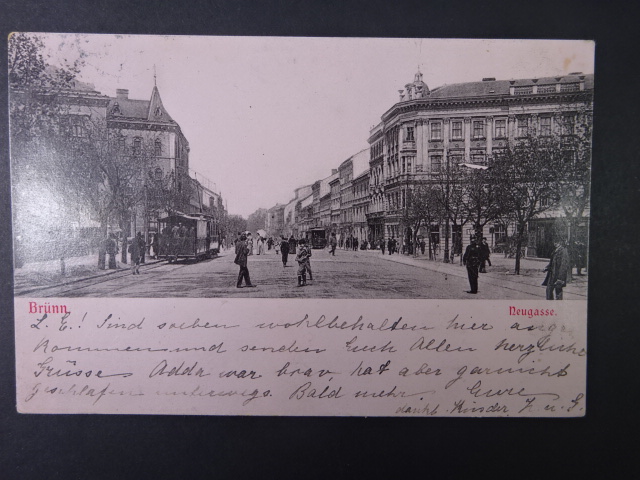 Brünn. Neugasse.
L. E.! Sind soeben wohlbehalten hier ange
kommen und senden Euch Allen herzliche
Grüsse. Adda war brav, hat aber gar nicht
geschlafen unterwegs. Bald mehr. Eure
Kinder, F. u. G.